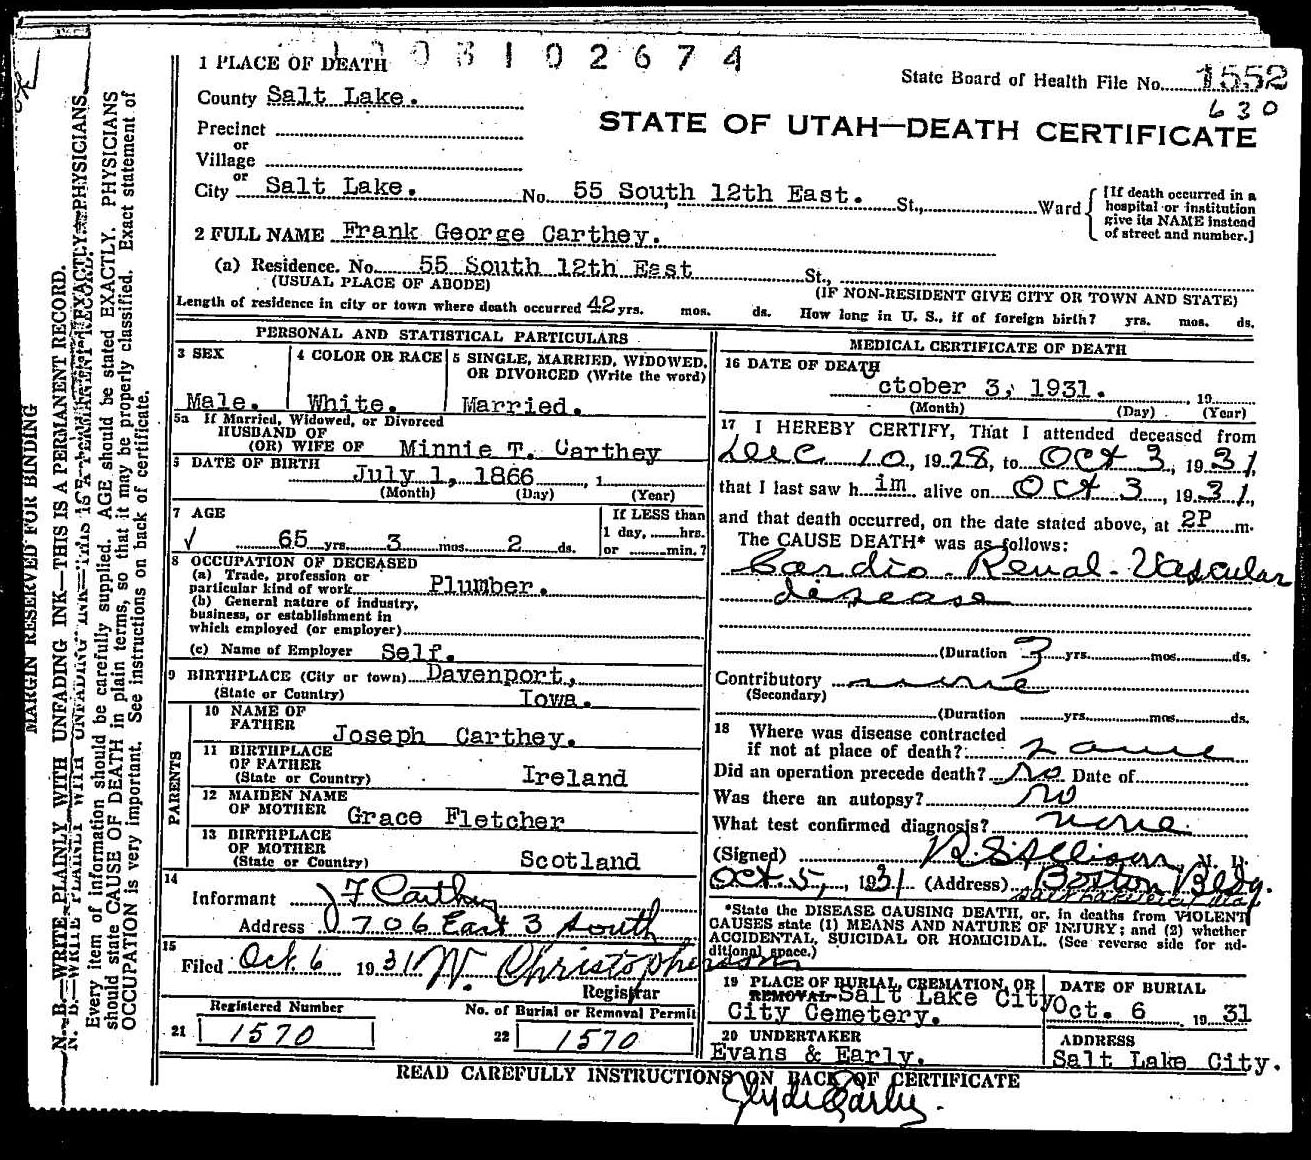 3102674
1 PLACE OF DEATH
State Board of Health File No. 1552
630
County Salt Lake.
STATE OF UTAH—DEATH CERTIFICATE
Precinct
or
Village
or
City Salt Lake. No. 55 South 12th East. St., Ward
[If death occurred in a
hospital or institution
give its NAME instead
of street and number.]
2 FULL NAME Frank George Carthey.
(a) Residence. No. 55 South 12th East St.,
(USUAL PLACE OF ABODE) (IF NON-RESIDENT GIVE CITY OR TOWN AND STATE)
Length of residence in city or town where death occurred 42 yrs. mos. ds. How long in U. S., if of foreign birth? yrs. mos. ds.
PERSONAL AND STATISTICAL PARTICULARS
3 SEX
Male.
4 COLOR OR RACE
White.
5 SINGLE, MARRIED, WIDOWED,
OR DIVORCED (Write the word)
Married.
5a If Married, Widowed, or Divorced
HUSBAND OF
(OR) WIFE OF Minnie T. Carthey
DATE OF BIRTH
July 1, 1866, 1
(Month) (Day) (Year)
7 AGE
65 yrs. 3 mos. 2 ds.
If LESS than
1 day, hrs.
or min.?
8 OCCUPATION OF DECEASED
(a) Trade, profession or
particular kind of work Plumber.
(b) General nature of industry,
business, or establishment in
which employed (or employer)
(c) Name of Employer Self.
9 BIRTHPLACE (City or town) Davenport,
(State or Country) Iowa.
PARENTS
10 NAME OF
FATHER Joseph Carthey.
11 BIRTHPLACE
OF FATHER
(State or Country) Ireland
12 MAIDEN NAME
OF MOTHER Grace Fletcher
13 BIRTHPLACE
OF MOTHER
(State or Country) Scotland
14
Informant F Carthey
Address 706 East 3 South
15
Filed Oct. 6 1931 W. Christopherson
Registrar
Registered Number
21 1570
No. of Burial or Removal Permit
22 1570
MEDICAL CERTIFICATE OF DEATH
16 DATE OF DEATH
October 3, 1931. 19
(Month) (Day) (Year)
17 I HEREBY CERTIFY, That I attended deceased from
Dec 10, 1928, to Oct 3, 1931
that I last saw him alive on Oct 3, 1931,
and that death occurred, on the date stated above, at 2P m.
The CAUSE DEATH* was as follows:
Cardio-Renal-Vascular
disease
(Duration 3 yrs. mos. ds.
Contributory none
(Secondary)
(Duration yrs. mos. ds.
18 Where was disease contracted
if not at place of death? same
Did an operation precede death? No Date of
Was there an autopsy? No
What test confirmed diagnosis? none.
(Signed) R S Allison, M. D.
Oct 5, 1931 (Address) Boston Bldg.
Salt Lake City Utah
*State the DISEASE CAUSING DEATH, or, in deaths from VIOLENT
CAUSES state (1) MEANS AND NATURE OF INJURY; and (2) whether
ACCIDENTAL, SUICIDAL OR HOMICIDAL. (See reverse side for ad-
ditional space.)
19 PLACE OF BURIAL, CREMATION, OR
REMOVAL Salt Lake City
City Cemetery.
DATE OF BURIAL
Oct. 6 1931
20 UNDERTAKER
Evans & Early.
ADDRESS
Salt Lake City.
READ CAREFULLY INSTRUCTIONS ON BACK OF CERTIFICATE
Clyde Early.
MARGIN RESERVED FOR BINDING
N. B.—WRITE PLAINLY WITH UNFADING INK—THIS IS A PERMANENT RECORD.
Every item of information should be carefully supplied. AGE should be stated EXACTLY. PHYSICIANS
should state CAUSE OF DEATH in plain terms, so that it may be properly classified. Exact statement of
OCCUPATION is very important. See instructions on back of certificate.